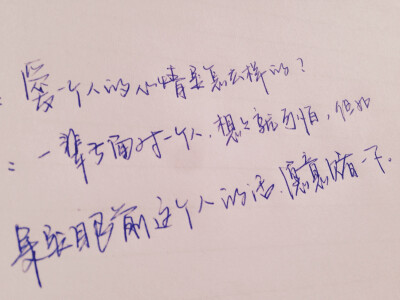 ：爱一个人的心情是怎么样的？
：一辈子面对一个人，想想就可怕，但如
果是眼前这个人的话，愿意试一下.